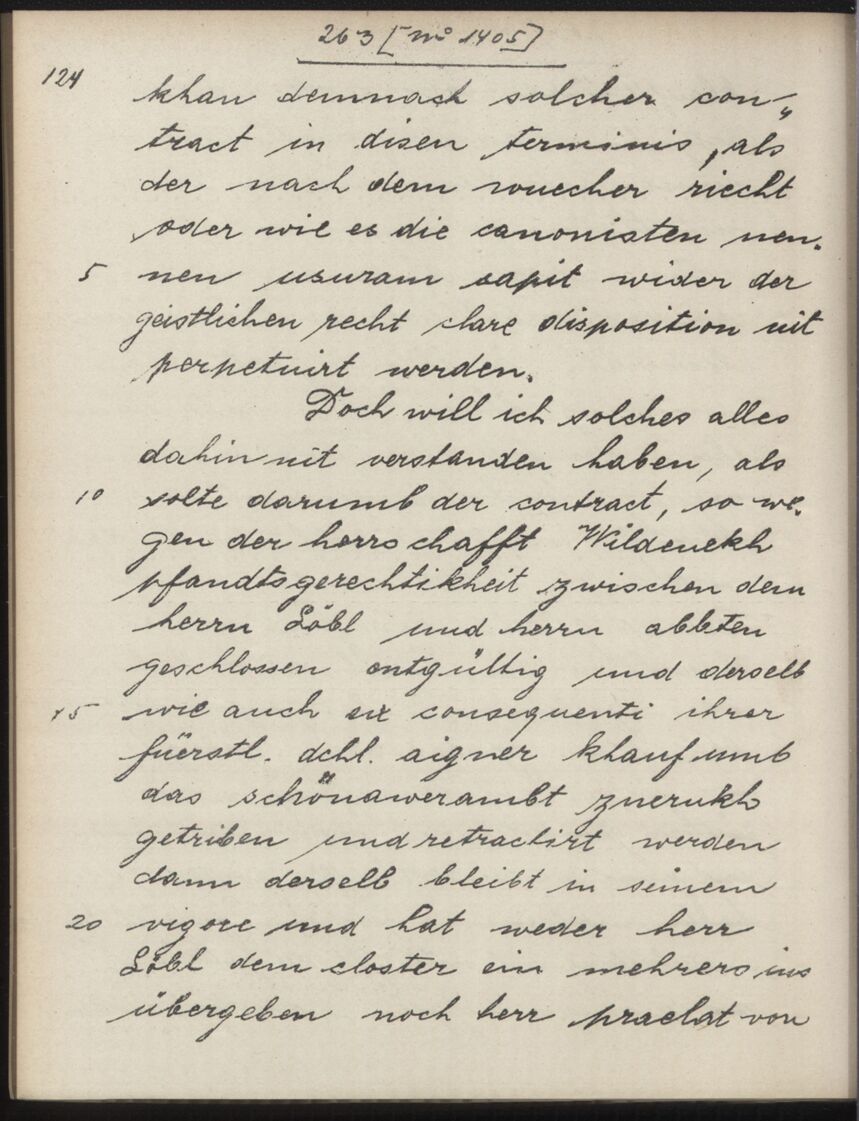 263 [No 1405]
124
khan demnach solcher con-
tract in disen terminis, als
der nach dem wuecher riecht
oder wie es die canonisten nen-
5 nen usuram sapit wider der
geistlichen recht clare disposition nit
perpetuirt werden.
Doch will ich solches alles
dahin nit verstanden haben, als
10 solte darumb der contract, so we-
gen der herrschafft Wildenekh
pfandtsgerechtikheit zwischen dem
herrn Löbl und herrn abbten
geschlossen entgültig und derselb
15 wie auch ex consequenti ihrer
füerstl. dchl. aigner khauf umb
das schönawerambt zuerukh
getriben und retractirt werden
dann derselb bleibt in seinem
20 vigore und hat weder herr
Löbl dem closter ein mehrers ius
übergeben noch herr praelat von